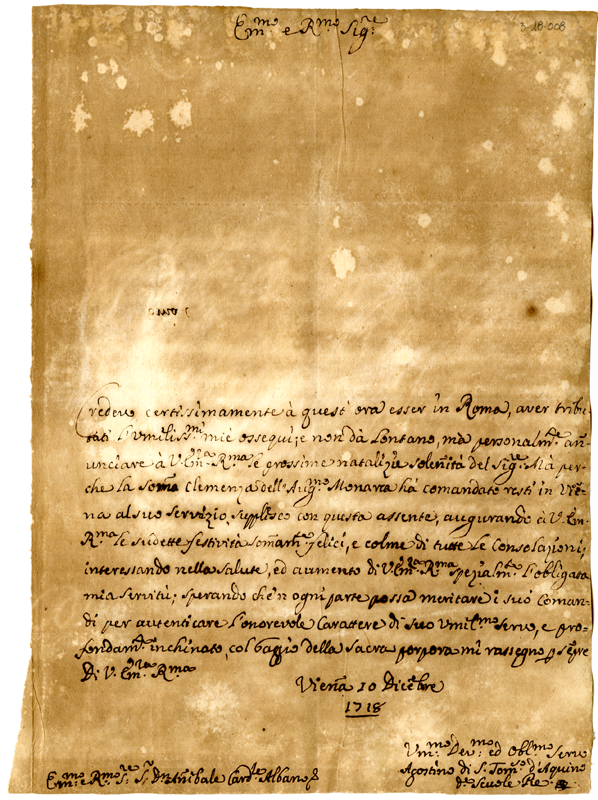 3-18-008
Em̃o e Rmo Sigre
Credevo certissimamente à quest'ora esser in Roma, aver tribu-
tati l'Umiliss.mi miei ossequi, e non dà lontano, mà personalmte an-
unciare à V. Em.za Rma le prossime natalizie solenità del Sigre. Mà per-
che la somã Clemenza dell'Augmo Monarca há comandato resti in Vie-
na al suo servizio, supplisco con questa assente, augurando à V. Em.
Rma le sudette festività somamte felici, e colme di tutte le consolazioni,
interessando nella salute, ed aumento di V. Em.za Rma spezialmte l'obligata
mia servitù; sperando che'n ogni parte possa meritare i suoi coman-
di per autenticare l'onorevole Carattere di suo Umilmo servo, e pro-
fondamte inchinato, col baggio della Sacra porpora mi rassegno p sempre
Di V. Em.za Rma
Viena 10 Dicẽbre
1718
Vmo Devmo ed Oblmo servo
Agostino di S. Tomo d'Aquino
De Scuole Pie
Em̃o e Rmo Sre Sr Dn Anibale Cardle Albano